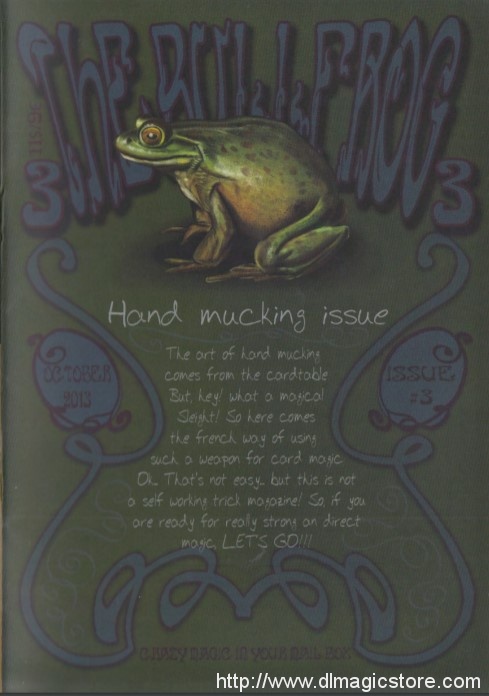 THE BULLFROG
ISSUE
3 3
Hand mucking issue
The art of hand mucking
comes from the cardtable.
But, hey! what a magical
Sleight! So here comes
the french way of using
such a weapon for card magic.
Ok... That's not easy... but this is not
a self working trick magazine! So, if you
are ready for really strong an direct
magic, LET'S GO!!!
OCTOBER
2013
ISSUE
#3
CRAZY MAGIC IN YOUR MAIL BOX
http://www.dlmagicstore.com